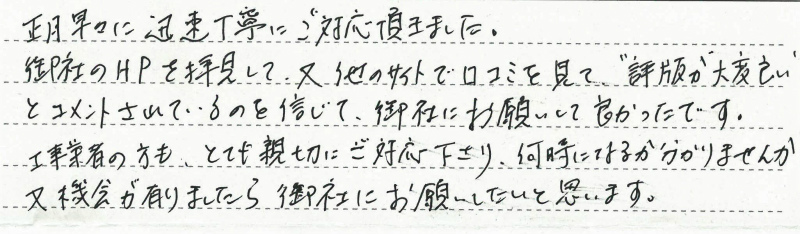 正月早々に迅速丁寧にご対応頂きました。
御社のHPを拝見して、又他のサイトで口コミを見て、"評版が大変良い"
とコメントされているのを信じて、御社にお願いして良かったです。
工事業者の方も、とても親切にご対応下さり、何時になるか分かりませんが
又機会が有りましたら御社にお願いしたいと思います。